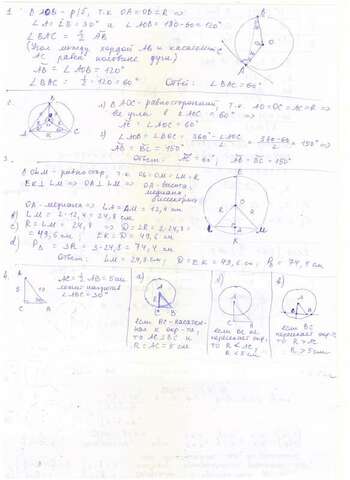 1. В ΔAOB - р/б, т.к. OA=OB=R ⇒
∠A = ∠B = 30° и ∠AOB = 180-60=120°
∠BAC = 1/2 AB
(Угол между хордой AB и касательной
AC равен половине дуги)
AB = ∠AOB = 120°
∠BAC = 1/2 · 120 = 60°   Ответ: ∠BAC = 60°
2.
1) В ΔAOC - равносторонний, т.к. AO=OC=AC=R ⇒
все углы в ΔAOC = 60° ⇒
AC = ∠AOC = 60°
2) ∠AOB = ∠BOC = (360° - ∠AOC)/2 = (360-60)/2 = 150° ⇒
AB = BC = 150°
Ответ: AC = 60°; AB = BC = 150°
3.
В ΔOLM - равностор, т.к. OL=OM=LM=R
EK⊥LM ⇒ OA⊥LM ⇒ OA - высота,
медиана,
биссектриса
OA - медиана ⇒ LA=AM = 12,4 см
b) LM = 2·12,4 = 24,8 см
c) R = LM = 24,8 ⇒ D = 2R = 2·24,8 =
= 49,6 см; EK = D = 49,6 см
d) P = 3R = 3·24,8 = 74,4 см
Ответ: LM = 24,8 см; D = EK = 49,6 см; P = 74,4 см
4.
AC = 1/2 AB = 5 см
∠ABC = 30°
а)
если BC - касатель-
ная к окр-ти,
то AC⊥BC и
R = AC = 5 см
б)
если BC не
пересекает окр,
то R < AC,
R < 5 см
в)
если BC
пересекает окр,
то R > AC
R > 5 см